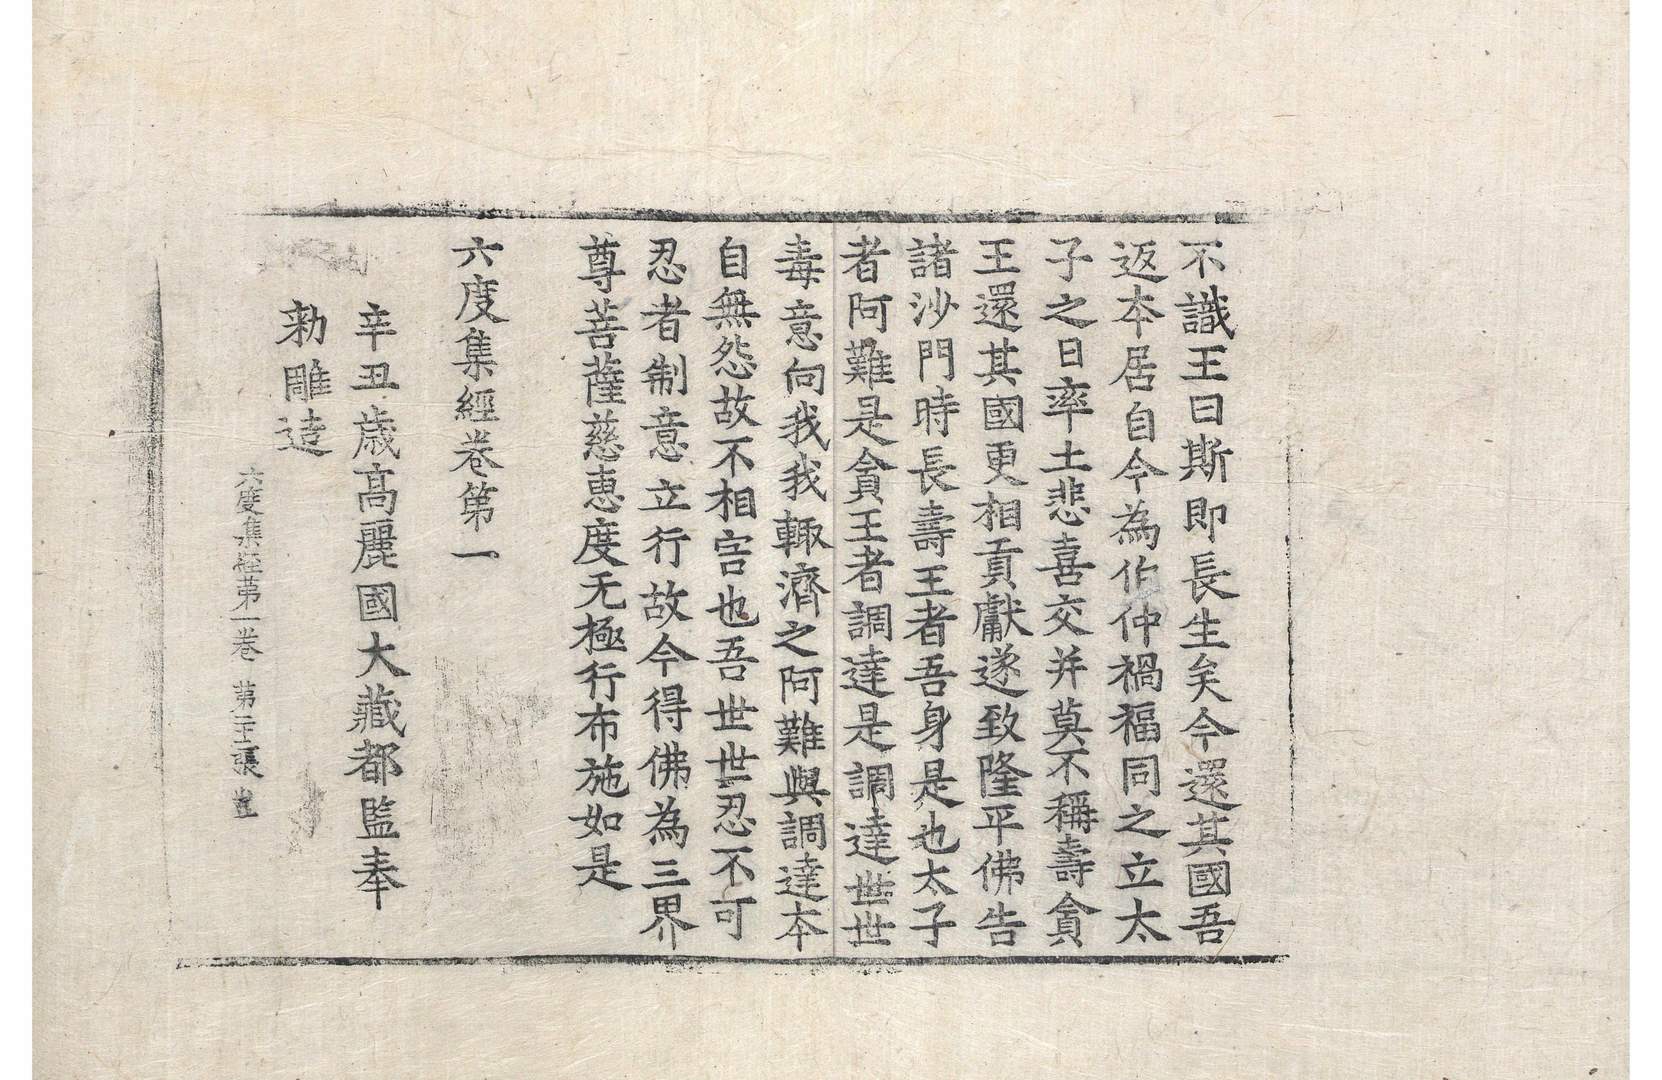 不識王曰斯即長生矣今還其國吾
返本居自今為伯仲禍福同之立太
子之日率土悲喜交并莫不稱壽貪
王還其國更相貢獻遂致隆平佛告
諸沙門時長壽王者吾身是也太子
者阿難是貪王者調達是調達世世
毒意向我我輙濟之阿難與調達本
自無怨故不相害也吾世世忍不可
忍者制意立行故今得佛為三界
尊菩薩慈恵度无極行布施如是
六度集經卷第一
辛丑歲高麗國大藏都監奉
勑雕造
六度集經第一卷 第 張